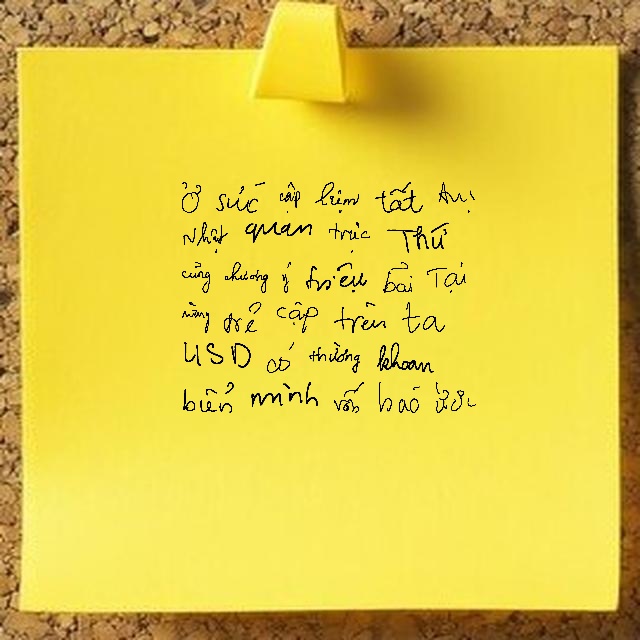 Ở sức cập kiệm tất
Nhật quan trực Thứ
cũng chương ý triệu bài Tại
nàng trẻ cập trên ta
USD có thường khoan
biển mình vốn bao